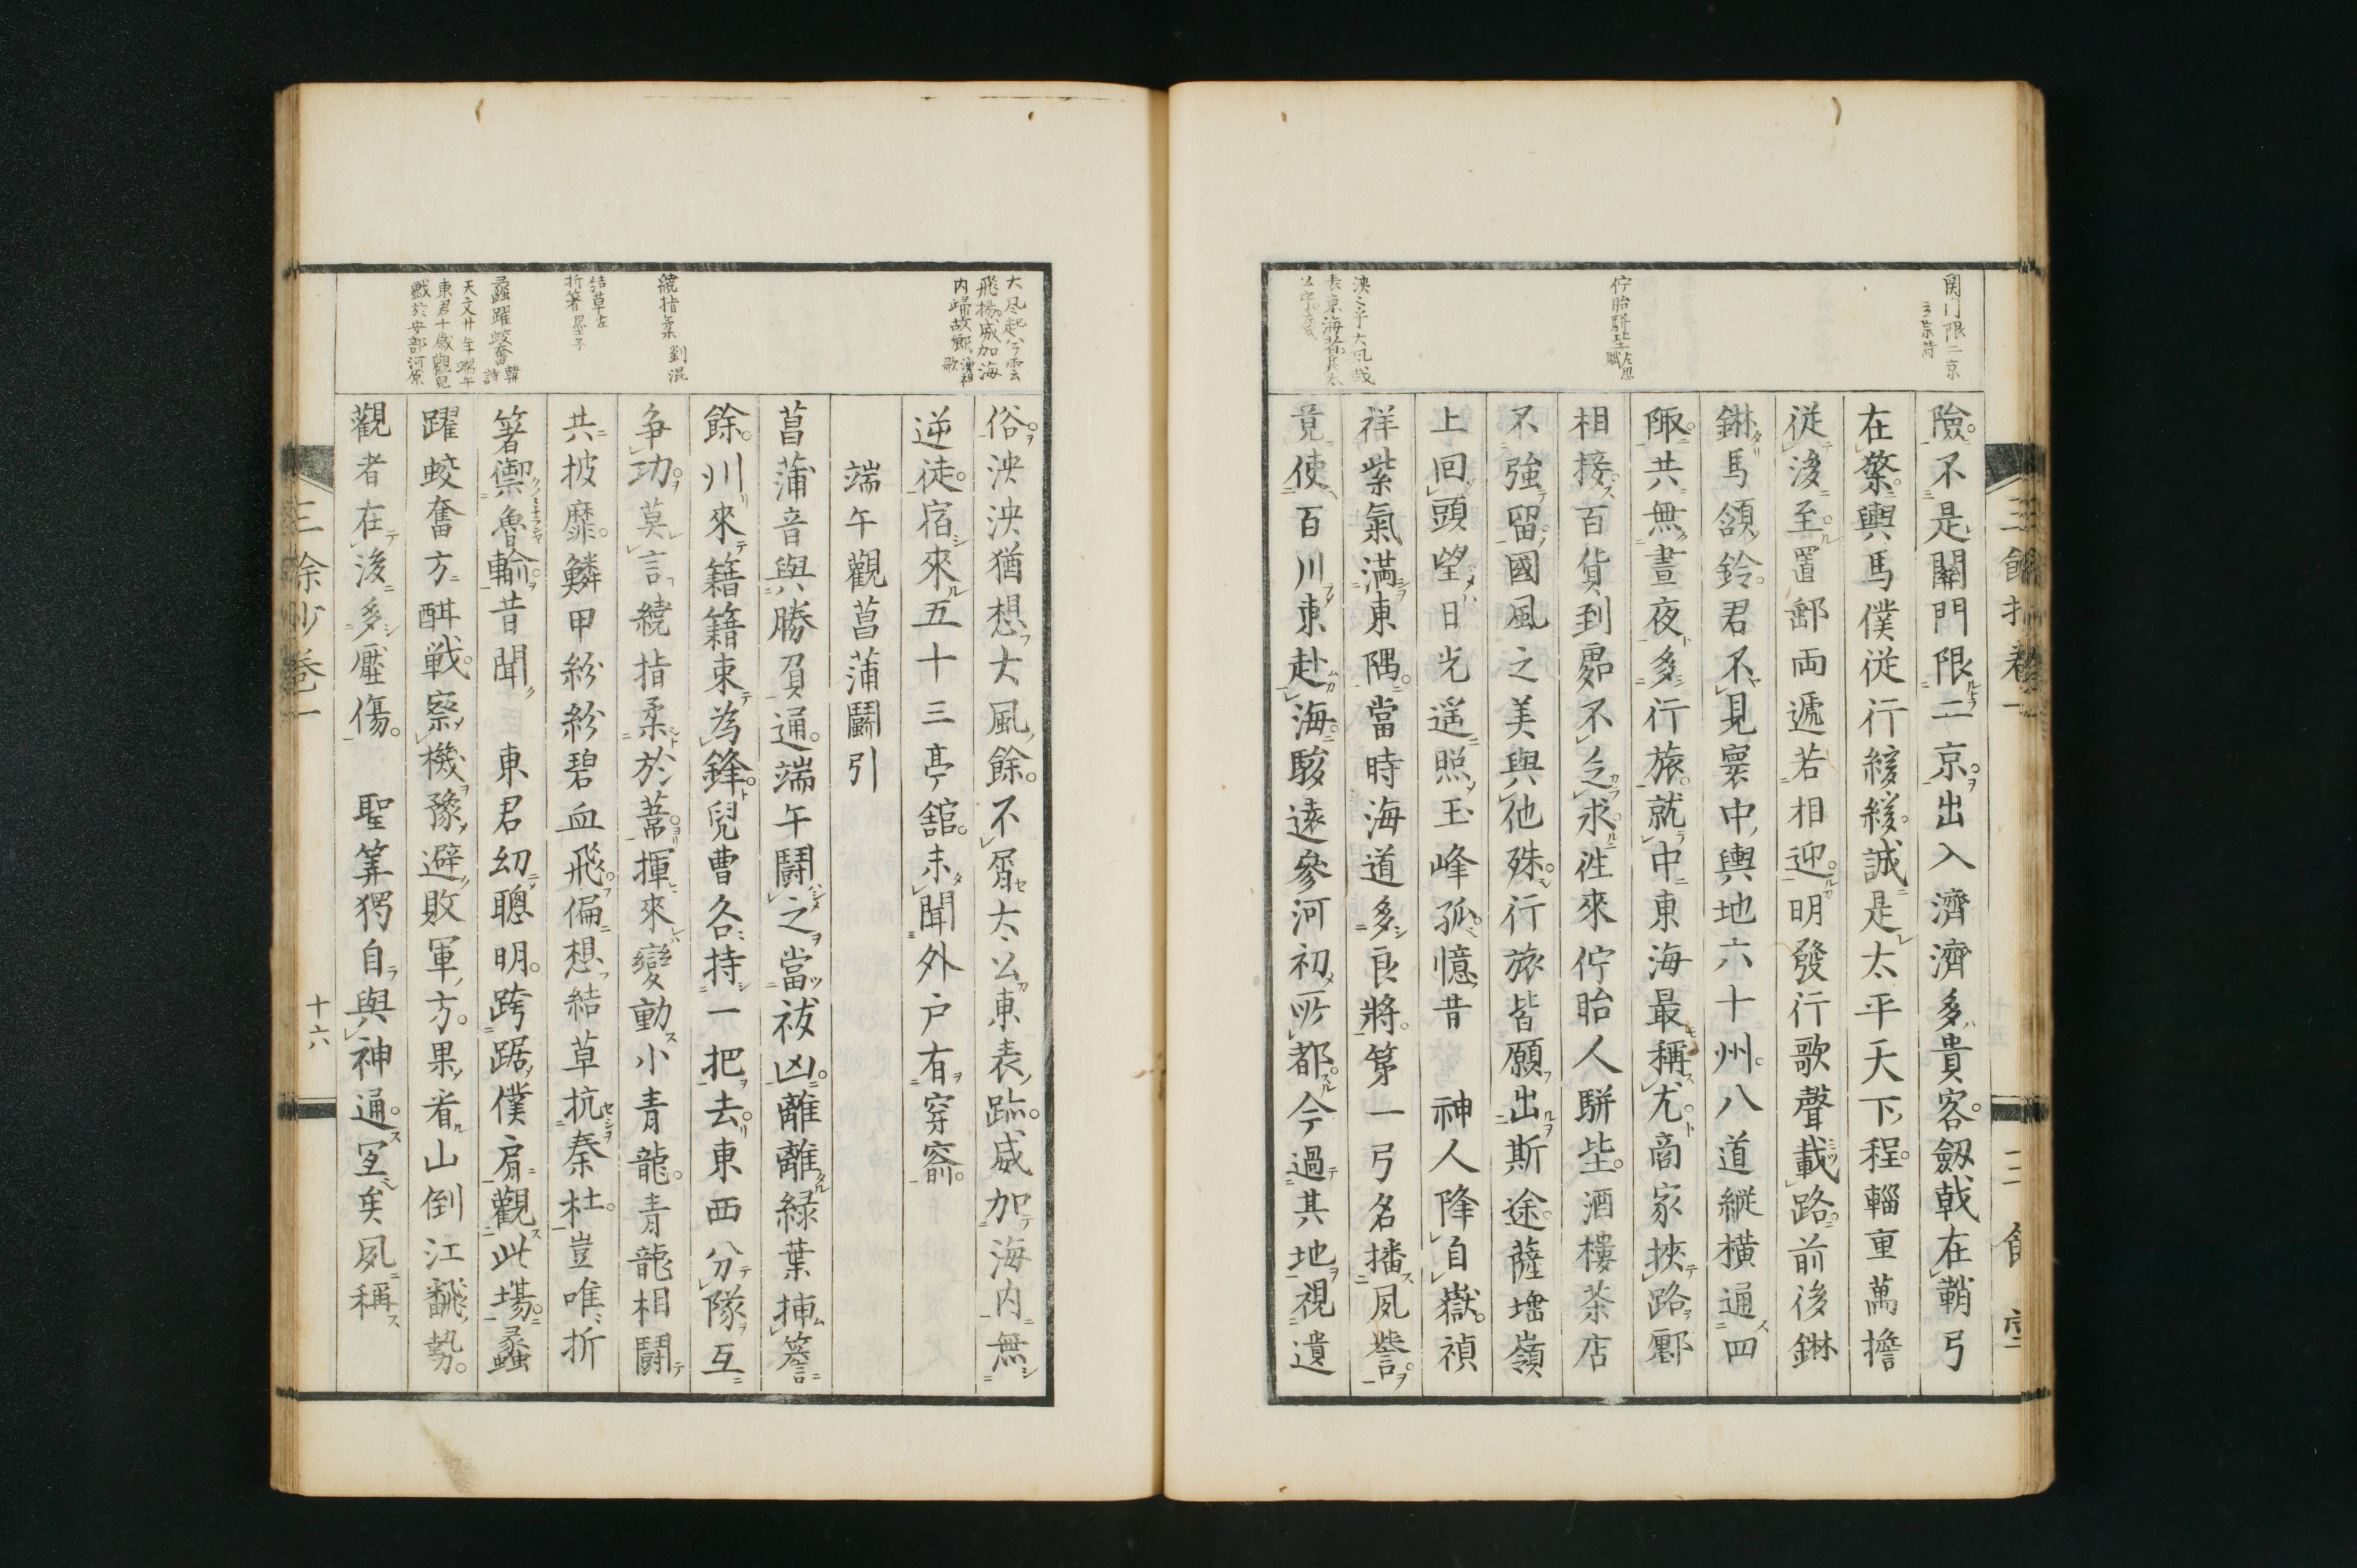 険不是關門限二京出入濟濟多貴客劔戟在鞘弓
在檠輿馬僕従行緩緩誠是太平天下程輜重萬擔
従後至置郵両遞若相迎明發行歌聲載路前後鉜
馬頷鈴君不見寰中輿地六十州八道縦横通四
陬共無晝夜多行旅就中東海最稱尤商家挾路鄽
相接百貨到處不乞求徃來佇眙人駢坒酒樓茶店
不強留國風之美與他殊行旅皆願出斯途薩埵嶺
上回頭望日光遥照玉峰孤憶昔　神人降自嶽禎
祥紫氣満東隅當時海道多良將第一弓名播夙譽
竟使百川東赴海駿遠參河初所都今過其地視遺
関门限二京
佇眙駢坒左思賦
泱々乎大風哉
表東海者其太
大風起兮雲
飛揚威加海
内歸故郷漢祖歌
俗泱泱猶想大風餘不屑太公東表跡威加海内無
逆徒宿來五十三亭舘未聞外户有穿窬
端午觀菖蒲鬭引
菖蒲音與勝負通端午鬭之當祓凶離離緑葉揷簷
餘州來籍籍束為鋒兒曹各持一把去東西分隊互
争功莫言繞指柔於葦揮來變動小青龍青龍相鬭
共披靡鱗甲紛紛碧血飛偏想結草抗秦杜豈唯折
箸禦魯輸昔聞　東君幼聰明跨踞僕肩觀此場蟲
躍蛟奮方酣戦察機豫避敗軍方果看山倒江飜勢
觀者在後多壓傷　聖筭獨自與神通冝矣夙稱
繞指柔　劉混
結草左
折箸墨子
蟲躍蛟奮韓詩
天文廿年端午
東君十歳觀兒
戯於安部河原
三餘抄巻一
十六
三餘堂